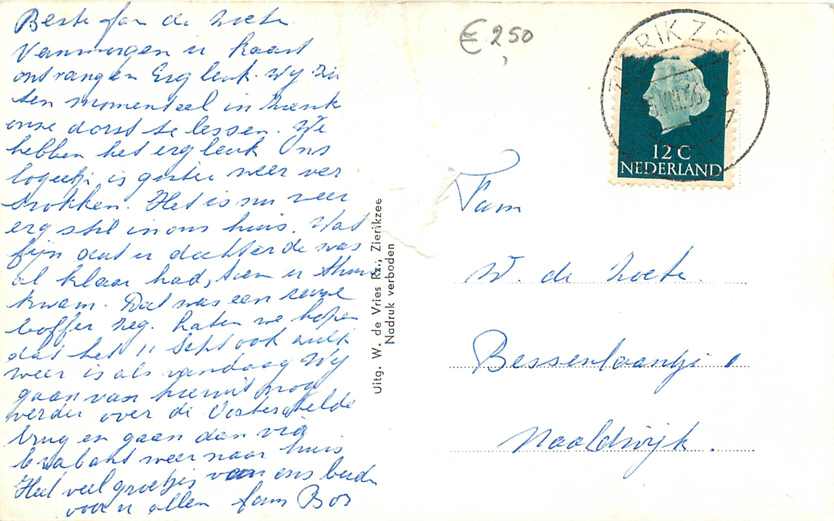 Beste fam de Zoete
Vanmorgen u kaart
ontvangen Erg leuk. Wij zit
ten momenteel in
onze dorst te lessen. We
hebben het erg leuk Ons
logeetje is gister weer ver
trokken. Het is nu weer
erg stil in ons huis. Wat
fijn dat u dochter de was
al klaar had, toen u thuis
kwam. Dat was een
boffer zeg. Laten we hopen
dat het 11 Sept ook zulk
weer is als vandaag Wij
gaan van hieruit nog
verder over de Oosterschelde
brug en gaan dan via
Brabant weer naar huis
Heel veel groetjes van ons beide
voor u allen fam Bos
€ 250
ZIERIKZEE
12 C
NEDERLAND
Uitg. W. de Vries Rz., Zierikzee
Nadruk verboden
Fam
W. de Zoete.
Bessenlaantje 1
Naaldwijk.